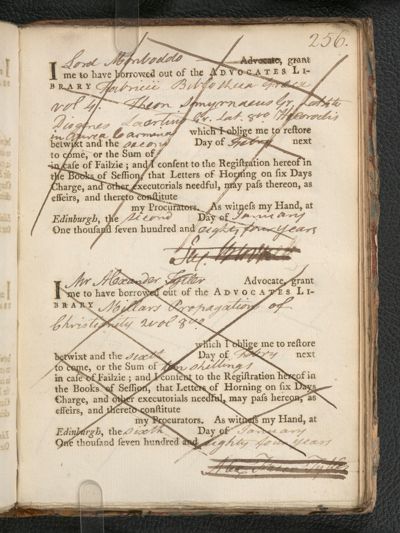 256.
I Lord Monboddo Advocate, grant
me to have borrowed out of the ADVOCATES LI-
BRARY Fabricii Bibliotheca Graeca
vol 4. Theon Smyrnaeus Gr. Lat 4to
Diogenes Laertius Gr. Lat. 8vo Hierocles
in Aurea Carmina which I oblige me to restore
betwixt and the second Day of Febry next
to come, or the Sum of
in case of Failzie; and I consent to the Registration hereof in
the Books of Session, that Letters of Horning on six Days
Charge, and other executorials needful, may pass thereon, as
effeirs, and thereto constitute
my Procurators. As witness my Hand, at
Edinburgh, the second Day of January
One thousand seven hundred and eighty four years
I Mr Alexander Tytler Advocate, grant
me to have borrowed out of the ADVOCATES LI-
BRARY Millars Propagation of
Christianity 2 vol 8vo
which I oblige me to restore
betwixt and the sixth Day of Febry next
to come, or the Sum of ten shillings
in case of Failzie; and I consent to the Registration hereof in
the Books of Session, that Letters of Horning on six Days
Charge, and other executorials needful, may pass hereon, as
effeirs, and thereto constitute
my Procurators. As witness my Hand, at
Edinburgh, the sixth Day of January
One thousand seven hundred and eighty four years
Alex Fraser Tytler